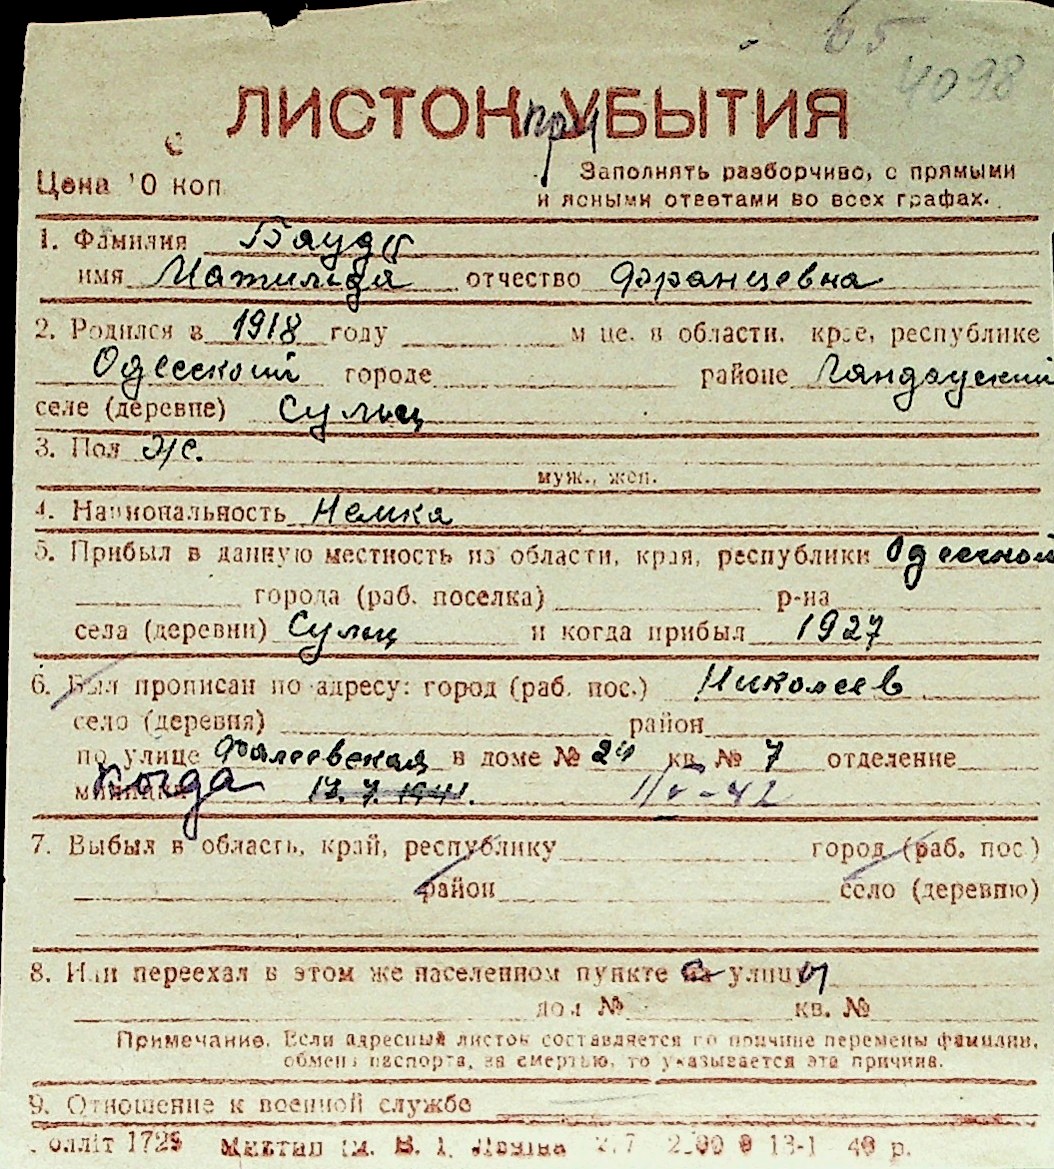 65
4098
ЛИСТОК при УБЫТИЯ
Цена 10 коп
Заполнять разборчиво, с прямыми
и ясными ответами во всех графах.
1. Фамилия Бауде
имя Матильда отчество Францевна
2. Родился в 1918 году м-це, в области, крае, республике
Одесской городе районе Ляндауский
селе (деревне) Сульц
3. Пол Ж.
муж., жен.
4. Национальность Немка
5. Прибыл в данную местность из области, края, республики Одесской
города (раб. поселка) р-на
села (деревни) Сульц и когда прибыл 1927
6. Был прописан по адресу: город (раб. пос.) Николаев
село (деревня) район
по улице Фалеевская в доме № 24 кв. № 7 отделение
милиции когда 17.7.1941. 11/V-42
7. Выбыл в область, край, республику город (раб. пос.)
район село (деревню)
8. Или переехал в этом же населенном пункте с улицы
дом № кв. №
Примечание. Если адресный листок составляется по причине перемены фамилии,
обмена паспорта, за смертью, то указывается эта причина.
9. Отношение к военной службе
1729 В. І. Леніна 13-1 40 р.